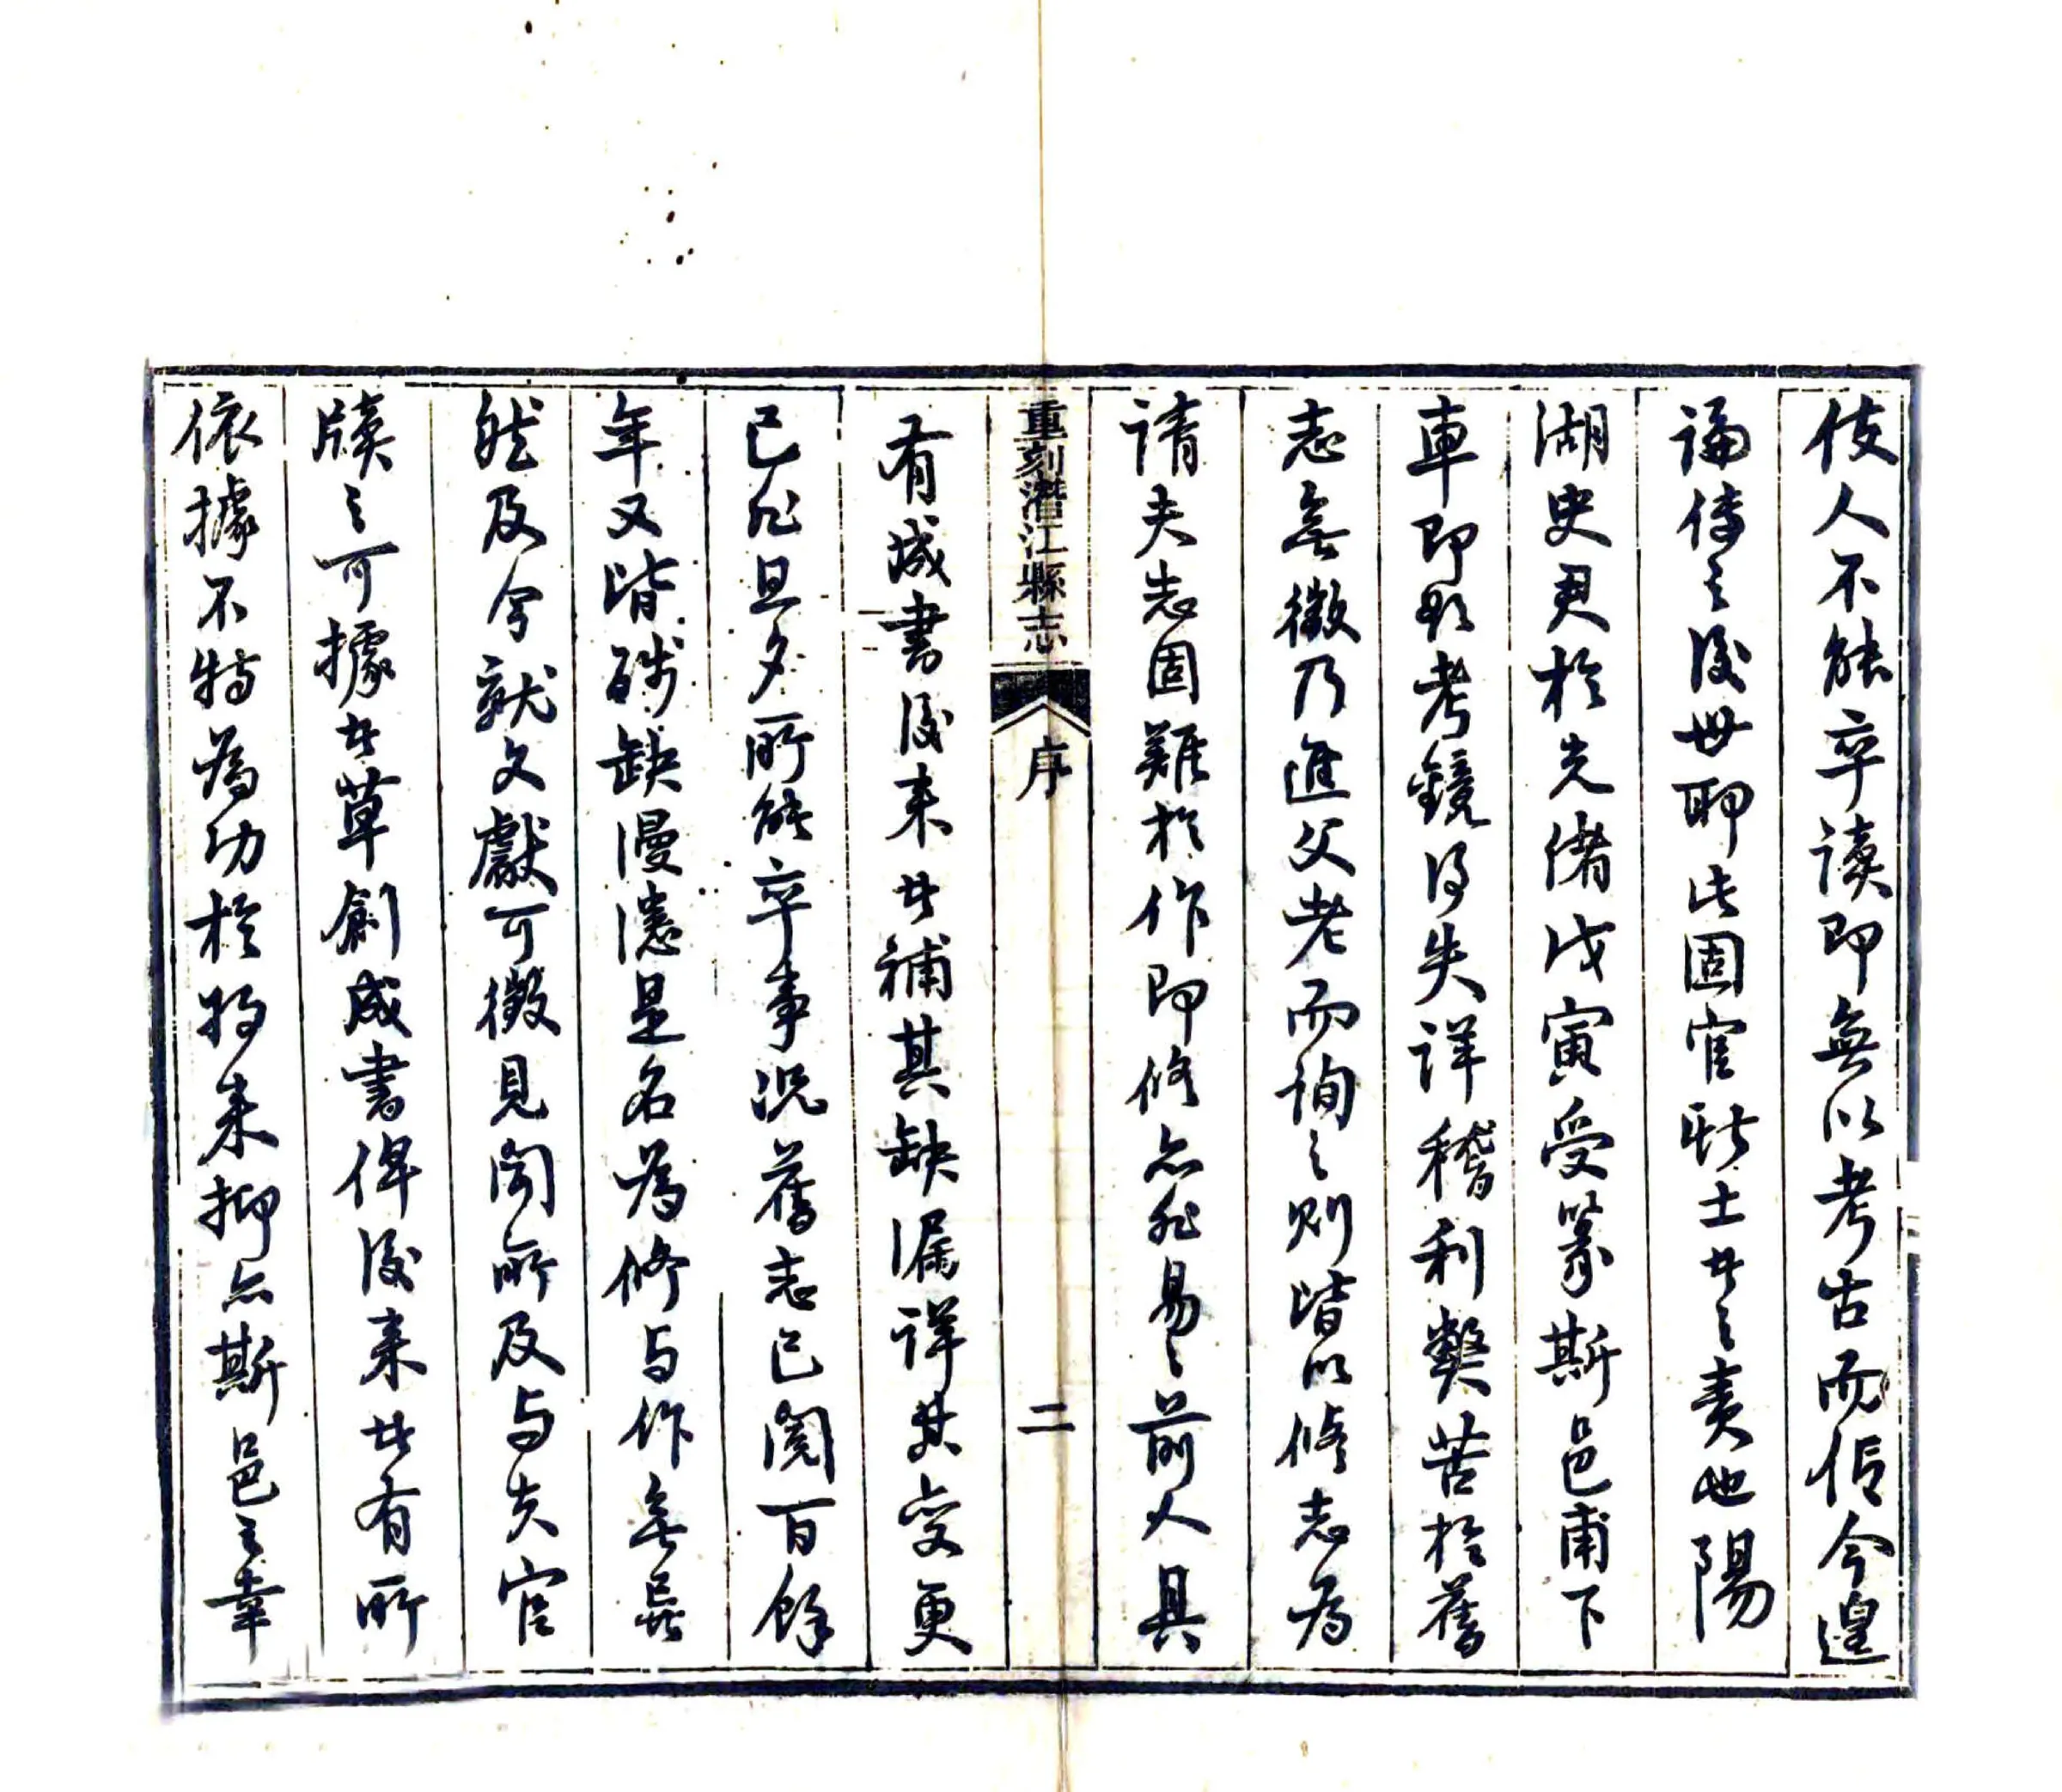 使人不能卒讀即無以考古而信今遑
論傳之後世耶此固官斯土者之責也陽
湖史君於先緒戊寅受篆斯邑甫下
車即勤考鏡得失詳稽利弊苦於舊
志無徵乃進父老而詢之則皆以修志為
請夫志固難於作即修亦非易易前人具
重刻潛江縣志
序
二
有成書後來者補其缺漏詳其變更
已非旦夕所能卒事況舊志已閱百餘
年又皆殘缺漫漶是名為修与作無異
然及今就文獻可徵見聞所及与夫官
牘之可據者草創成書俾後来者有所
依據不特為功於將来抑亦斯邑之幸